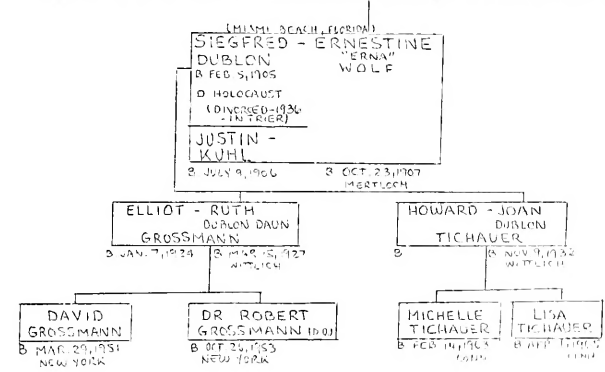 (MIAMI BEACH, FLORIDA)
SIEGFRED - ERNESTINE
DUBLON "ERNA"
WOLF
B FEB 5, 1905
D HOLOCAUST
(DIVORCED-1936
-IN TRIER)
JUSTIN -
KUHL
B JULY 9, 1906 B OCT. 23, 1907
MERTLOCH
ELLIOT - RUTH
DUBLON DAUN
GROSSMANN
B JAN. 7, 1924 B MAR 15, 1927
WITTLICH
HOWARD - JOAN
DUBLON
TICHAUER
B B NOV 9, 1932
WITTLICH
DAVID
GROSSMANN
B MAR. 29, 1951
NEW YORK
DR ROBERT
GROSSMANN (D.O.)
B OCT 26, 1953
NEW YORK
MICHELLE
TICHAUER
B FEB 14, 1963
CONN
LISA
TICHAUER
B APR
CONN